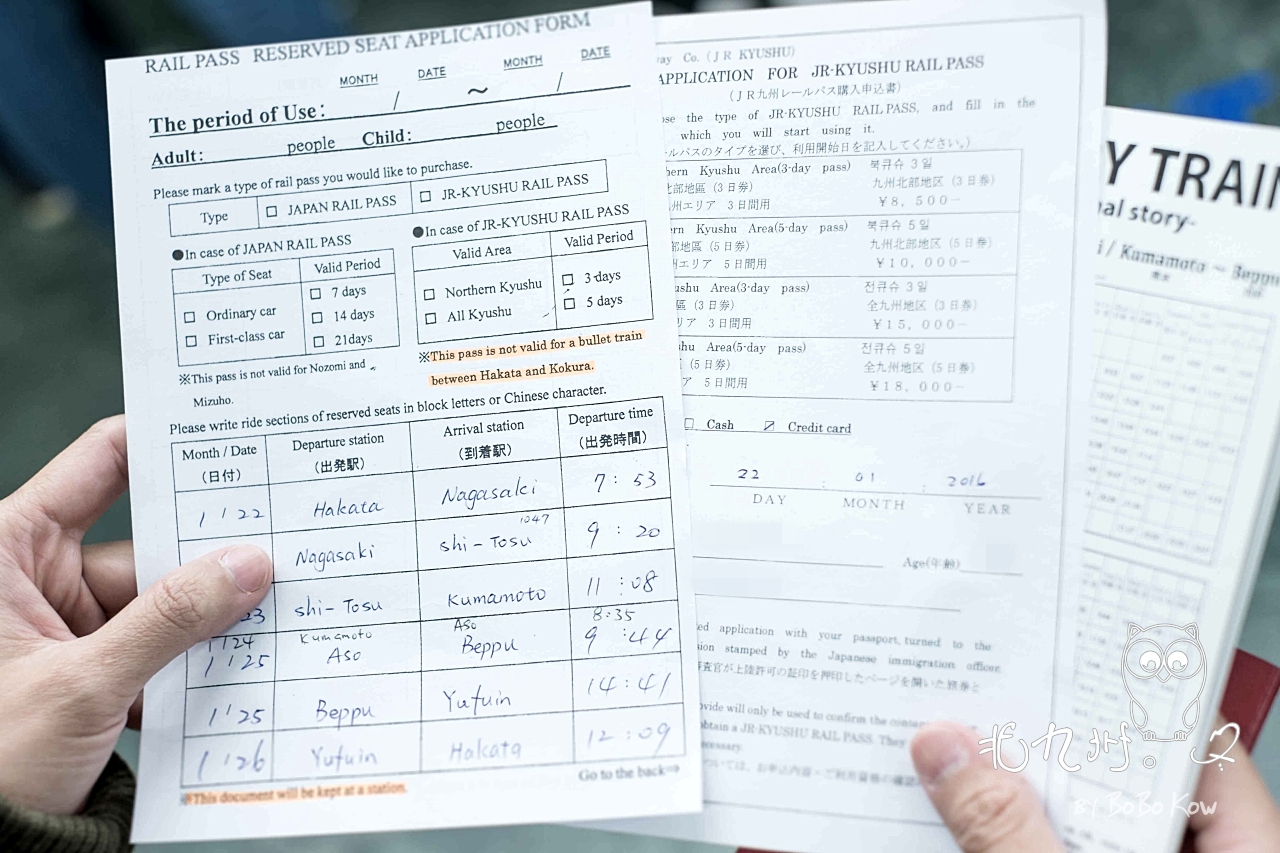 RAIL PASS RESERVED SEAT APPLICATION FORM
MONTH DATE MONTH DATE
The period of Use: / ~ /
Adult: people Child: people
Please mark a type of rail pass you would like to purchase.
Type □ JAPAN RAIL PASS □ JR-KYUSHU RAIL PASS
●In case of JAPAN RAIL PASS
Type of Seat Valid Period
□ Ordinary car
□ First-class car
□ 7 days
□ 14 days
□ 21days
※This pass is not valid for Nozomi and
Mizuho.
●In case of JR-KYUSHU RAIL PASS
Valid Area Valid Period
□ Northern Kyushu □ 3-days
□ All Kyushu □ 5 days
※This pass is not valid for a bullet train
between Hakata and Kokura.
Please write ride sections of reserved seats in block letters or Chinese character.
Month / Date Departure station Arrival station Departure time
(日付) (出発駅) (到着駅) (出発時間)
1 ' 22 Hakata Nagasaki 7 : 53
Nagasaki shi-Tosu 1047 9 : 20
23 shi-Tosu Kumamoto 11 : 08
1 ' 24 Kumamoto Aso 8:35
1 ' 25 Aso Beppu 9 : 44
1 ' 25 Beppu Yufuin 14 : 41
1 ' 26 Yufuin Hakata 12 : 09
Go to the back⇒
※This document will be kept at a station.
way Co. (JR KYUSHU)
APPLICATION FOR JR-KYUSHU RAIL PASS
(JR九州レールパス購入申込書)
ose the type of JR-KYUSHU RAIL PASS, and fill in the
which you will start using it.
ールパスのタイプを選び、利用開始日を記入してください。)
hern Kyushu Area(3-day pass) 북큐슈 3일
北部地區 (3日券) 九州北部地区 (3日券)
州エリア 3日間用 ¥8,500−
ern Kyushu Area(5-day pass) 북큐슈 5일
部地區 (5日券) 九州北部地区 (5日券)
州エリア 5日間用 ¥10,000−
ushu Area(3-day pass) 전큐슈 3일
區 (3日券) 全九州地区 (3日券)
リア 3日間用 ¥15,000−
u Area(5-day pass) 전큐슈 5일
(5日券) 全九州地区 (5日券)
ア 5日間用 ¥18,000−
□ Cash ☑ Credit card
22 : 01 : 2016
DAY MONTH YEAR
Age(年齢)
ed application with your passport, turned to the
ion stamped by the Japanese immigration officer.
審査官が上陸許可の証印を押印したページを開いた旅券と
ovide will only be used to confirm the
obtain a JR-KYUSHU RAIL PASS. They
ecessary.
ついては、お申込内容・ご利用資格の確認
Y TRAIN
al story-
i / Kumamoto ~ Beppu
北九州。
BY BOBO KOW